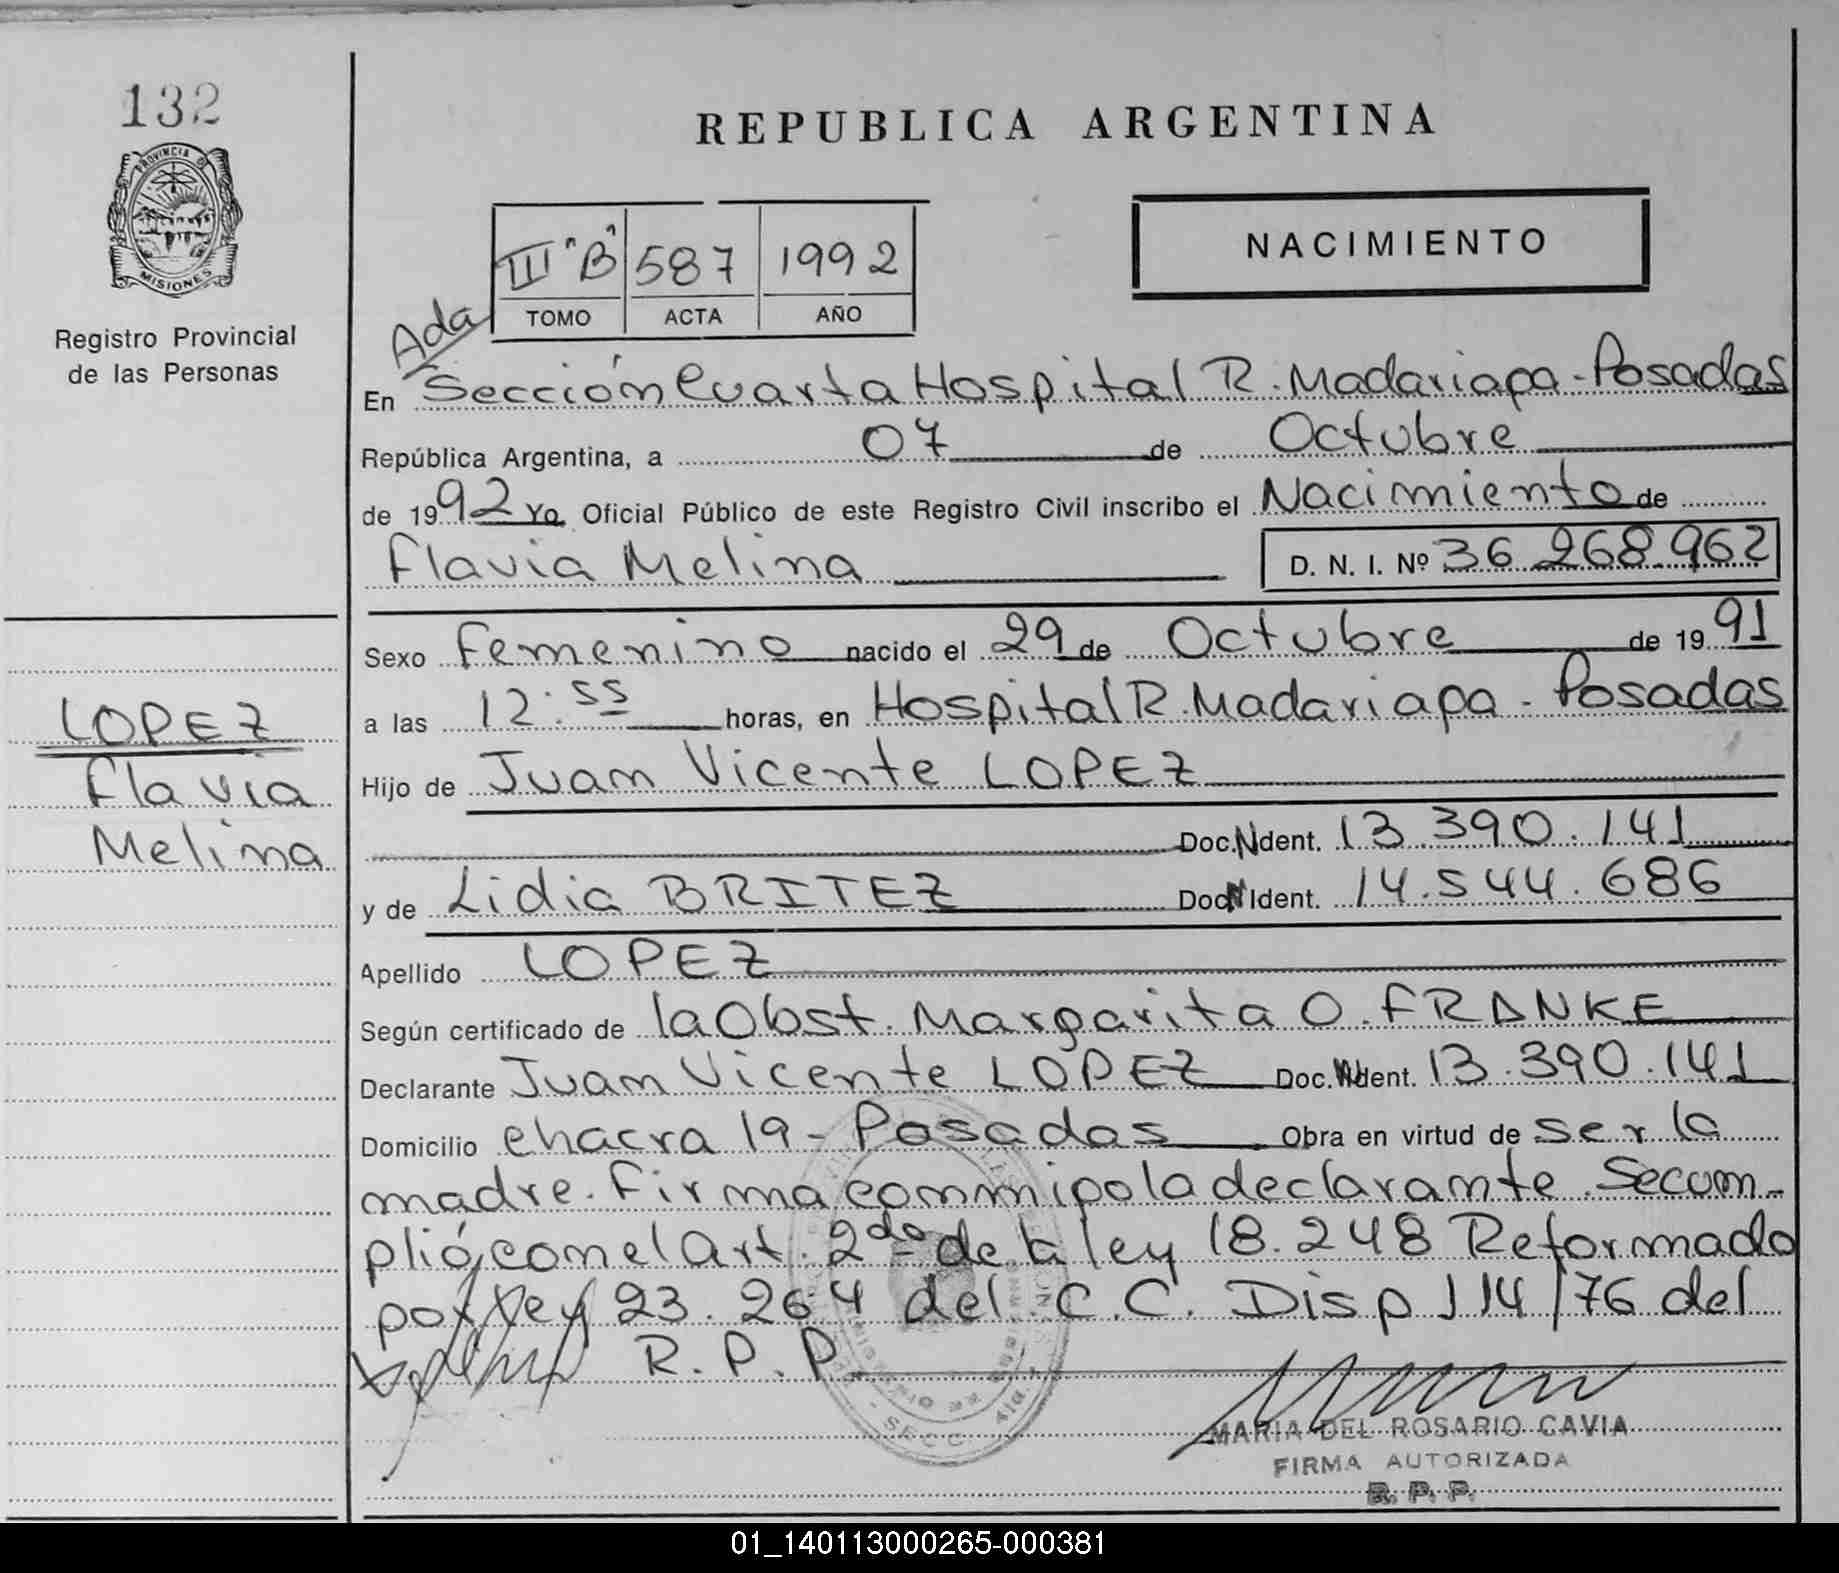 132
PROVINCIA DE
MISIONES
Registro Provincial
de las Personas
LOPEZ
Flavia
Melina
REPUBLICA ARGENTINA
NACIMIENTO
III "B" 587 1992
TOMO ACTA AÑO
Ada
En Sección Cuarta Hospital R. Madariaga - Posadas
República Argentina, a 07 de Octubre
de 1992 Yo Oficial Público de este Registro Civil inscribo el Nacimiento de
Flavia Melina D. N. I. Nº 36.268.962
Sexo Femenino nacido el 29 de Octubre de 1991
a las 12:55 horas, en Hospital R. Madariaga - Posadas
Hijo de Juan Vicente LOPEZ
Doc. Ident. 13.390.141
y de Lidia BRITEZ Doc. Ident. 14.544.686
Apellido LOPEZ
Según certificado de la Obst. Margarita O. FRANKE
Declarante Juan Vicente LOPEZ Doc. Ident. 13.390.141
Domicilio chacra 19 - Posadas Obra en virtud de ser la
madre. Firma conmigo la declarante. Se cum-
plió con el Art. 2do de la ley 18.248 Reformado
por ley 23.264 del C.C. Disp 114/76 del
R.P.P.
MARIA DEL ROSARIO CAVIA
FIRMA AUTORIZADA
R. P. P.
01_140113000265-000381